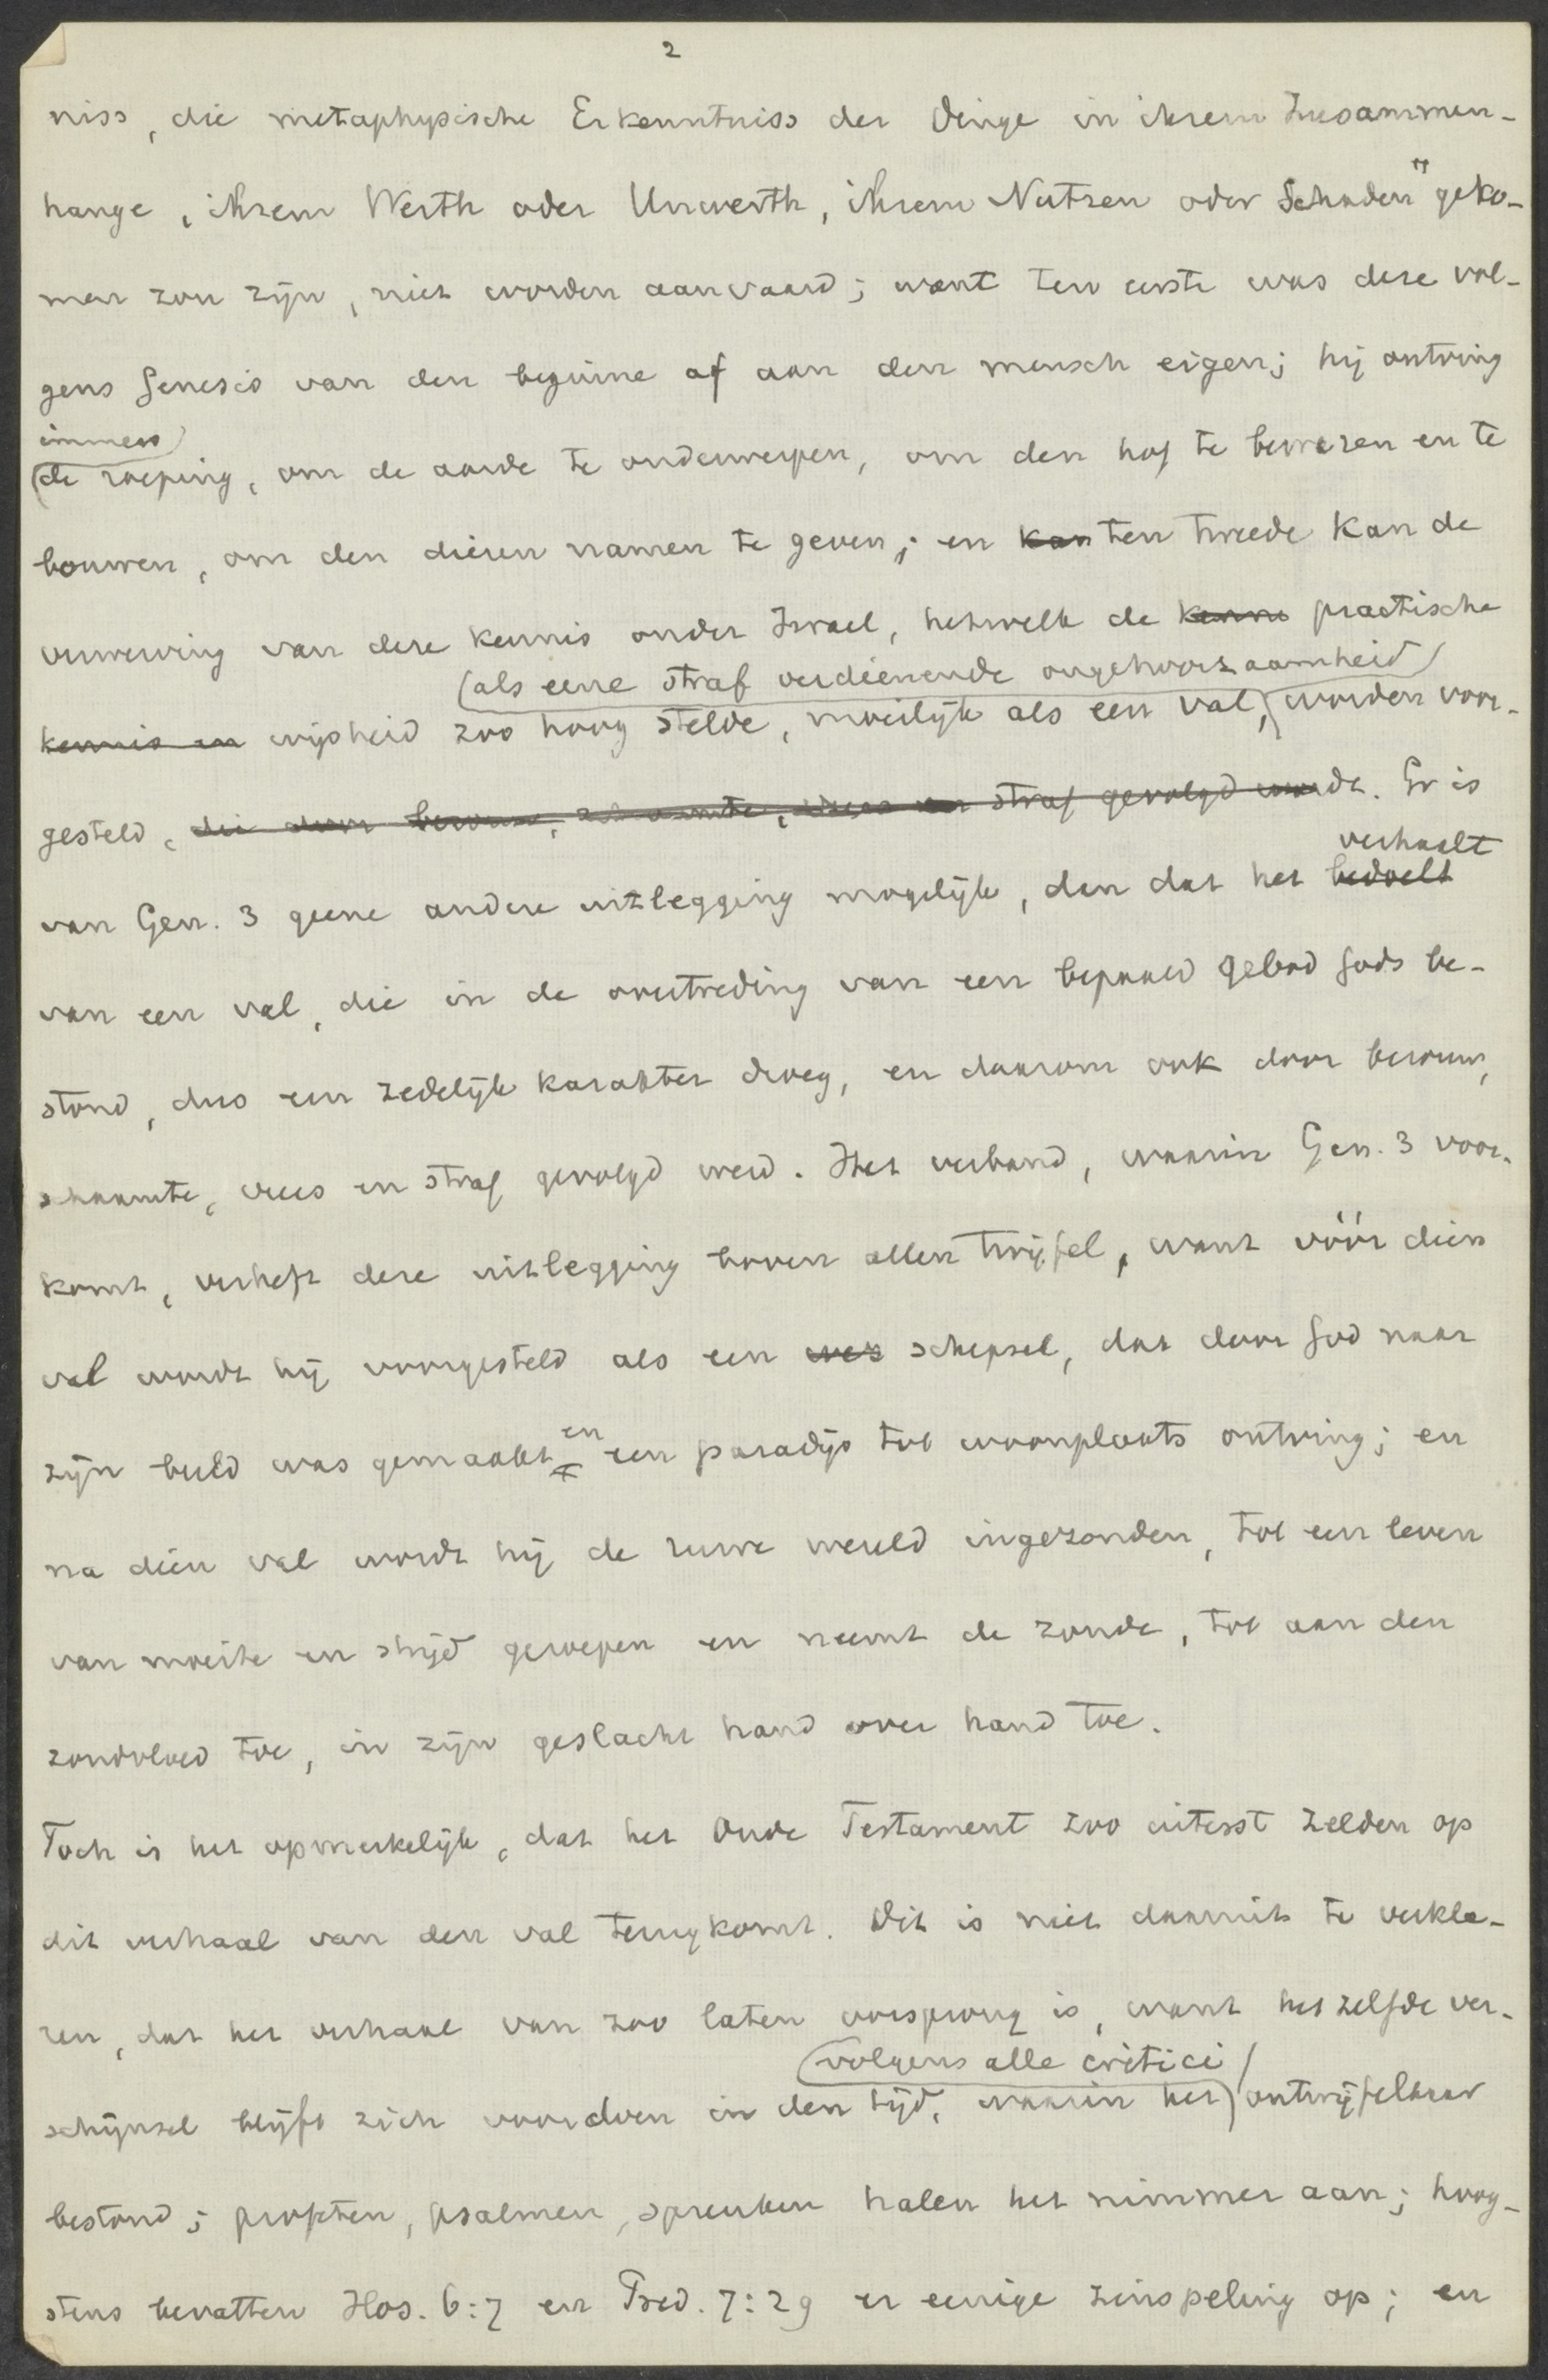 2
niss, die metaphysische Erkenntniss der Dinge in ihrem Zusammen-
hange, ihrem Werth oder Unwerth, ihrem Nutzen oder Schaden" geko-
men zou zijn, niet worden aanvaard; want ten eerste was deze vol-
gens Genesis van den beginne af aan den mensch eigen; hij ontving
immers
de roeping, om de aarde te onderwerpen, om den hof te bewaren en te
bouwen, om den dieren namen te geven; en kan ten tweede kan de
verwerving van deze kennis onder Israel, hetwelk de kenni practische
(als eene straf verdienende ongehoorzaamheid)
kennis en wijsheid zoo hoog stelde, moeilijk als een val, worden voor-
gesteld, die door berouw, schaamte, vrees en straf gevolgd werdt. Er is
verhaalt
van Gen. 3 geene andere uitlegging mogelijk, dan dat het bedoelt
van een val, die in de overtreding van een bepaald gebod Gods be-
stond, dus een zedelijk karakter droeg, en daarom ook door berouw,
schaamte, vrees en straf gevolgd werd. Het verband, waarin Gen. 3 voor-
komt, verheft deze uitlegging boven allen twijfel, want vóór dien
val wordt hij voorgesteld als een wez schepsel, dat door God naar
en
zijn beeld was gemaakt een paradijs tot woonplaats ontving; en
na dien val wordt hij de ruwe wereld ingezonden, tot een leven
van moeite en strijd geroepen en neemt de zonde, tot aan den
zondvloed toe, in zijn geslacht hand over hand toe.
Toch is het opmerkelijk, dat het Oude Testament zoo uiterst zelden op
dit verhaal van den val terugkomt. Dit is niet daaruit te verkla-
ren, dat het verhaal van zoo laten oorsprong is, want hetzelfde ver-
(volgens alle critici)
schijnsel blijft zich voordoen in den tijd, waarin het ontwijfelbaar
bestond; profeten, psalmen, spreuken halen het nimmer aan; hoog-
stens bevatten Hos. 6:7 en Pred. 7:29 er eenige zinspeling op; en